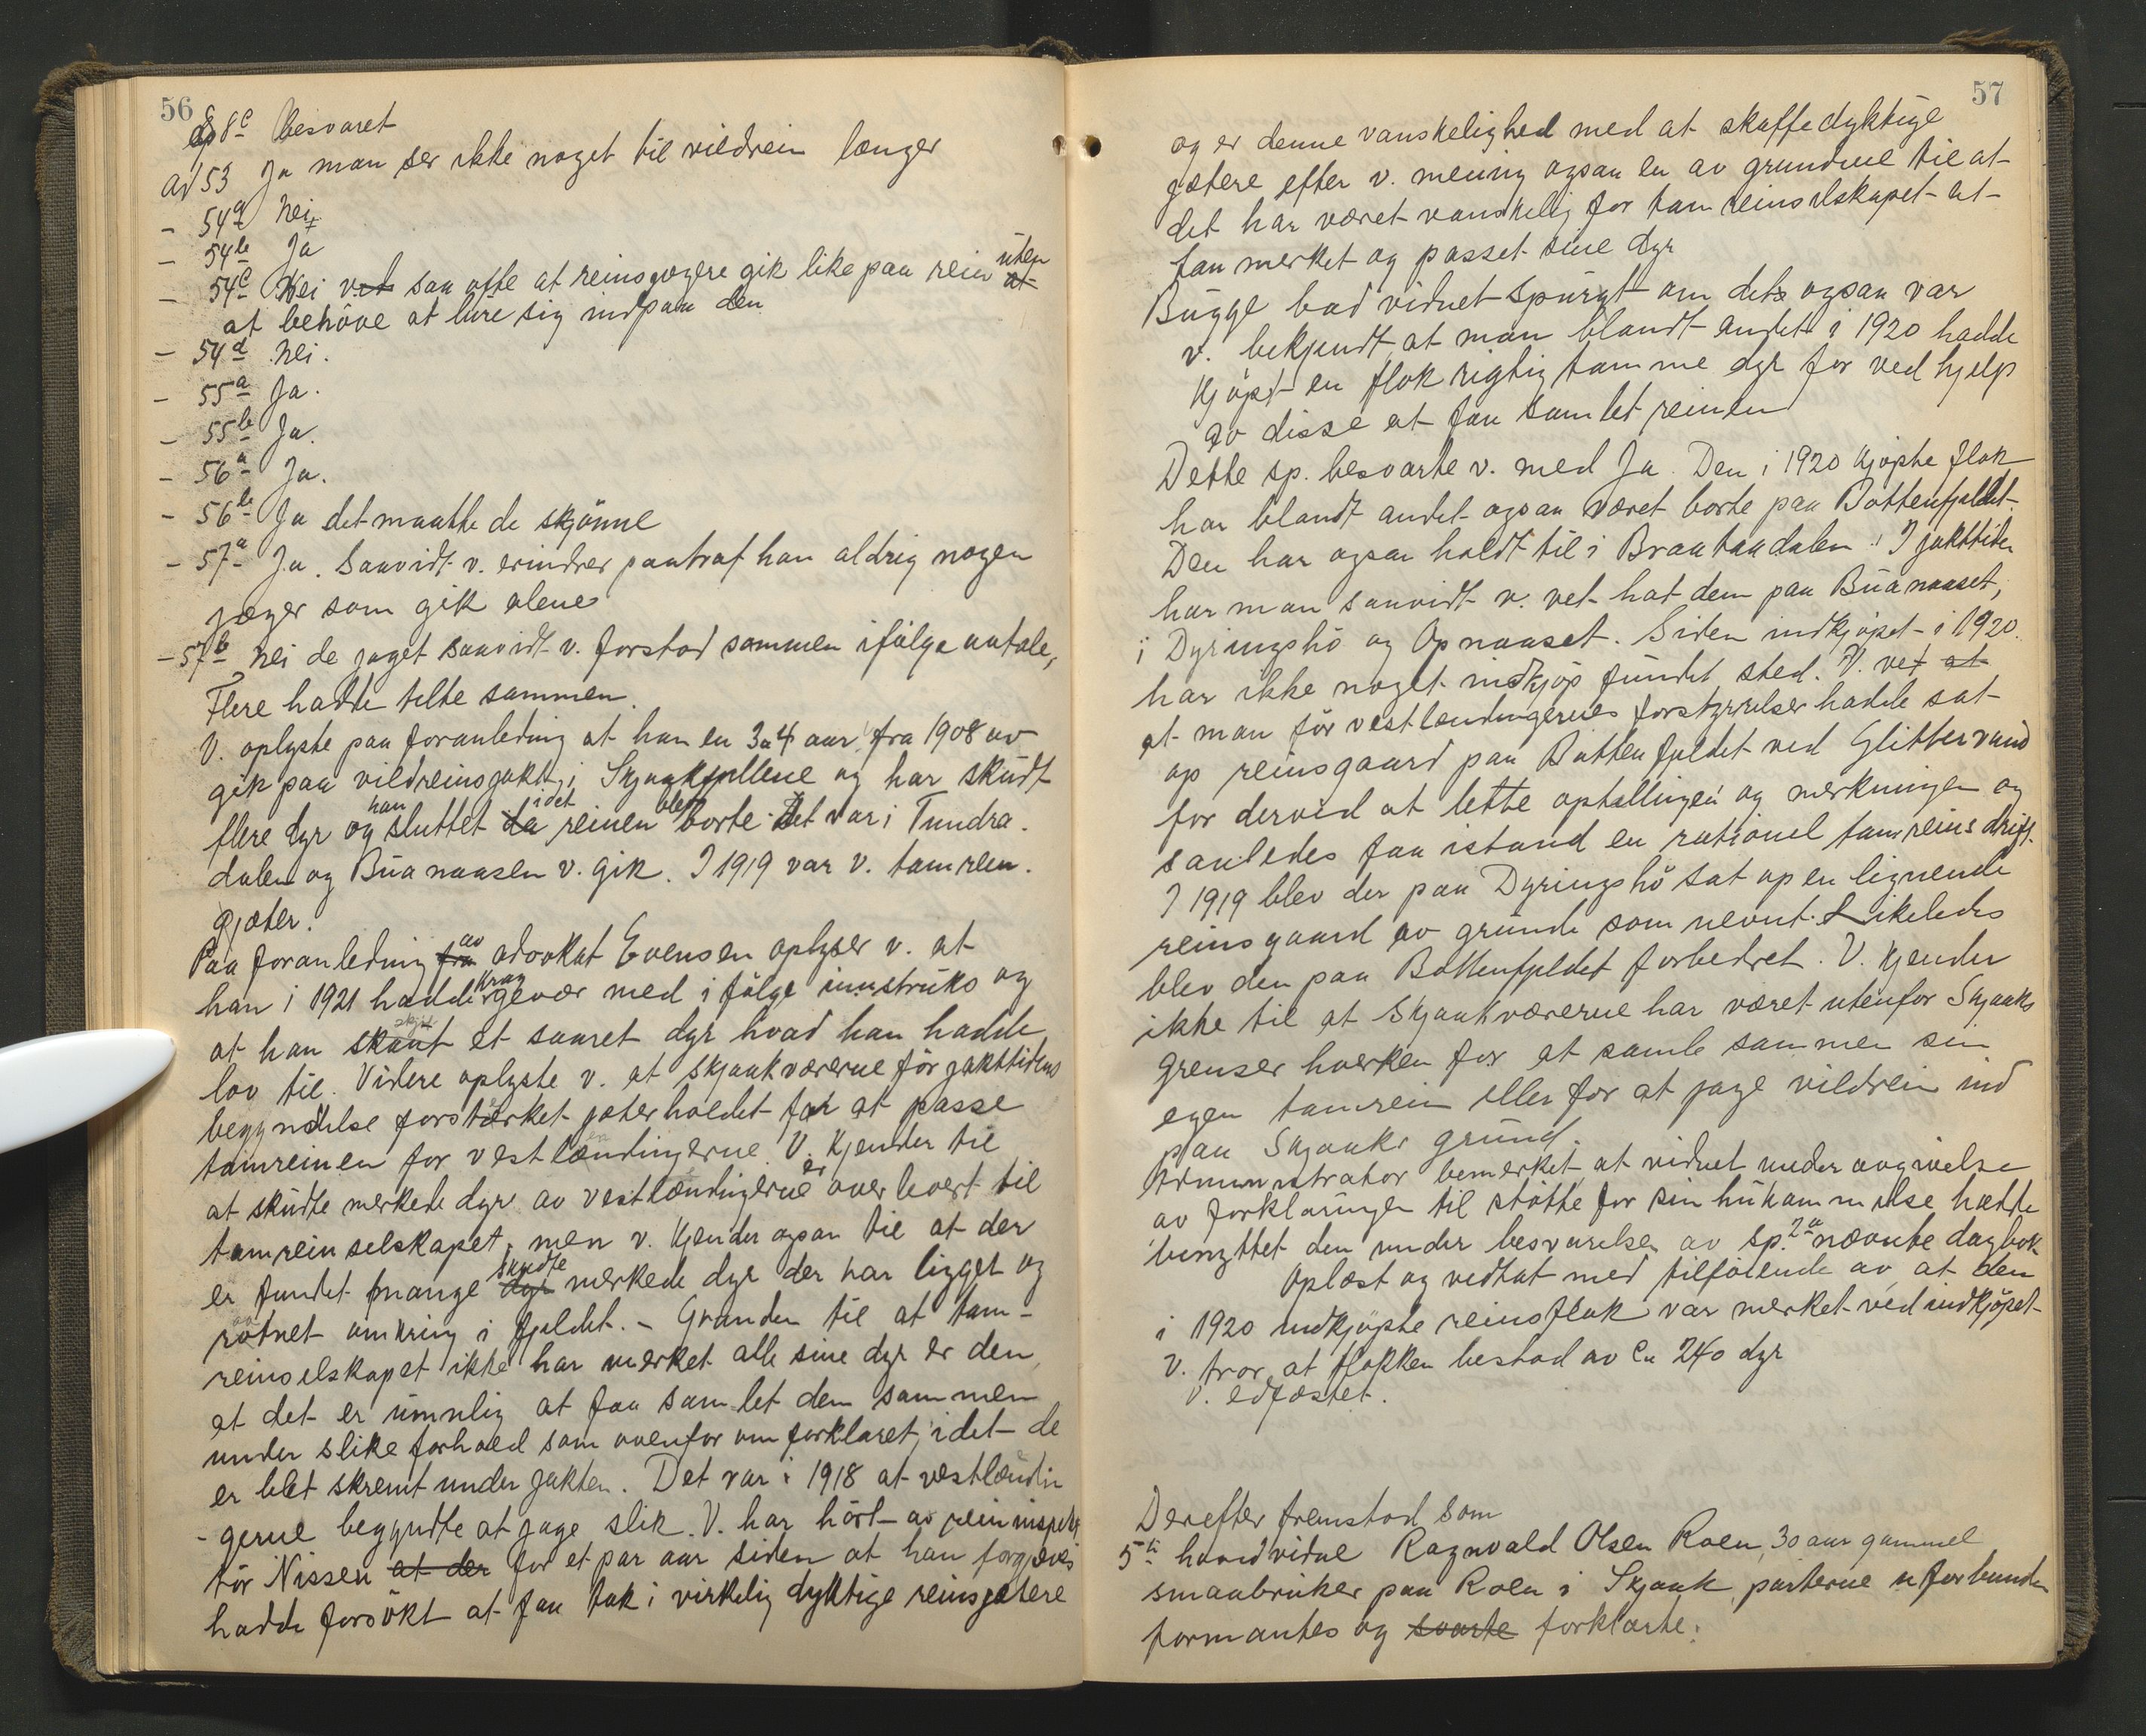 56
8c besvaret
ad 53 Ja man ser ikke noget til vildrein længer
- 54a Nei
- 54b Ja
- 54c Nei v. saa ofte at reinsgjetere gik like paa rein uten
at behöve at lure sig indpaa den
- 54d Nei.
- 55a Ja.
- 55b Ja.
- 56a Ja.
- 56b Ja det maatte de skjönne
- 57a Ja. Saavidt v. erindrer paatraf han aldrig nogen
jæger som gik alene
- 57b Nei de jaget saavidt v. forstod sammen ifölge avtale,
Flere hadde telte sammen.
V. oplyste paa foranledning at han en 3 a 4 aar fra 1908 av
gik paa vildreinsjakt i Skjaakfjellene og har skudt
flere dyr og han sluttet idet reinen blev borte. Det var i Tundra-
dalen og Buanaasen v. gik. I 1919 var v. tamrein-
gjæter.
Paa foranledning av advokat Evensen oplyser v. at
han i 1921 hadde krag gevær med i fölge innstruks og
at han skjöt et saaret dyr hvad han hadde
lov til. Videre oplyste v. at skjaakværerne för jakttidens
begyndelse forstærket jæterholdet for at passe
tamreinen for vestlændingerne. V. kjender til
at skudte merkede dyr av vestlændingerne er overlevert til
tamreinselskapet, men v. kjender ogsaa til at der
er fundet mange skudte merkede dyr der har ligget og
raatnet omkring i fjeldet. - Grunden til at tam-
reinselskapet ikke har merket alle sine dyr er den
at det er umulig at faa samlet dem sammen
under slike forhold som ovenfor om forklaret, idet de
er blet skremt under jakten. Det var i 1918 at vestlændin
- gerne begyndte at jage slik. V. har hört av reininspek
tör Nissen for et par aar siden at han forgjæves
hadde forsökt at faa tak i virkelig dyktige reinsjætere
57
og er denne vanskelighed med at skaffe dyktige
jætere efter v. mening ogsaa en av grundene til at
det har været vanskelig for tamreinselskapet at
faa merket og passet sine dyr
Bugge bad vidnet spurgt om det ogsaa var
v. bekjendt at man blandt andet i 1920 hadde
kjöpt en flok rigtig tamme dyr for ved hjelp
av disse at faa samlet reinen
Dette sp. besvarte v. med Ja. Den i 1920 kjöpte flok
har blandt andet ogsaa været borte paa Bottenfjeldet.
Den har ogsaa holdt til i Braataadalen. I jakttiden
har man saavidt v. vet hat dem paa Buanaaset,
i Dyringshö og Opnaaset. Siden indkjöpet i 1920
har ikke noget indkjöp fundet sted. V. vet
at man för vestlændingernes forstyrrelser hadde sat
op reinsgaard paa Bottenfjeldet ved Glittervand
for derved at lette optellingen og merkningen og
saaledes faa istand en rationel tamreinsdrift.
I 1919 blev der paa Dyringshö sat op en lignende
reinsgaard av grunde som nevnt. Likeledes
blev den paa Bottenfjeldet forbedret. V. kjender
ikke til at Skjaakværerne har været utenfor Skjaaks
grenser hverken for at samle sammen sin
egen tamrein eller for at jage vildrein ind
paa Skjaaks grund.
Administrator bemerket at vidnet under avgivelse
av forklaringen til stötte for sin hukommelse hadde
benyttet den under besvarelsen av sp. 2a nævnte dagbok
Oplæst og vedtat med tilföiende av at den
i 1920 indkjöpte reinsflok var merket ved indkjöpet
v. tror at flokken bestod av ca 240 dyr
v. edfæstet.
Derefter fremstod som
5te hovedvidne Ragnvald Olsen Roen, 30 aar gammel
smaabruker paa Roen i Skjaak, parterne uforbunden
formantes og forklarte: